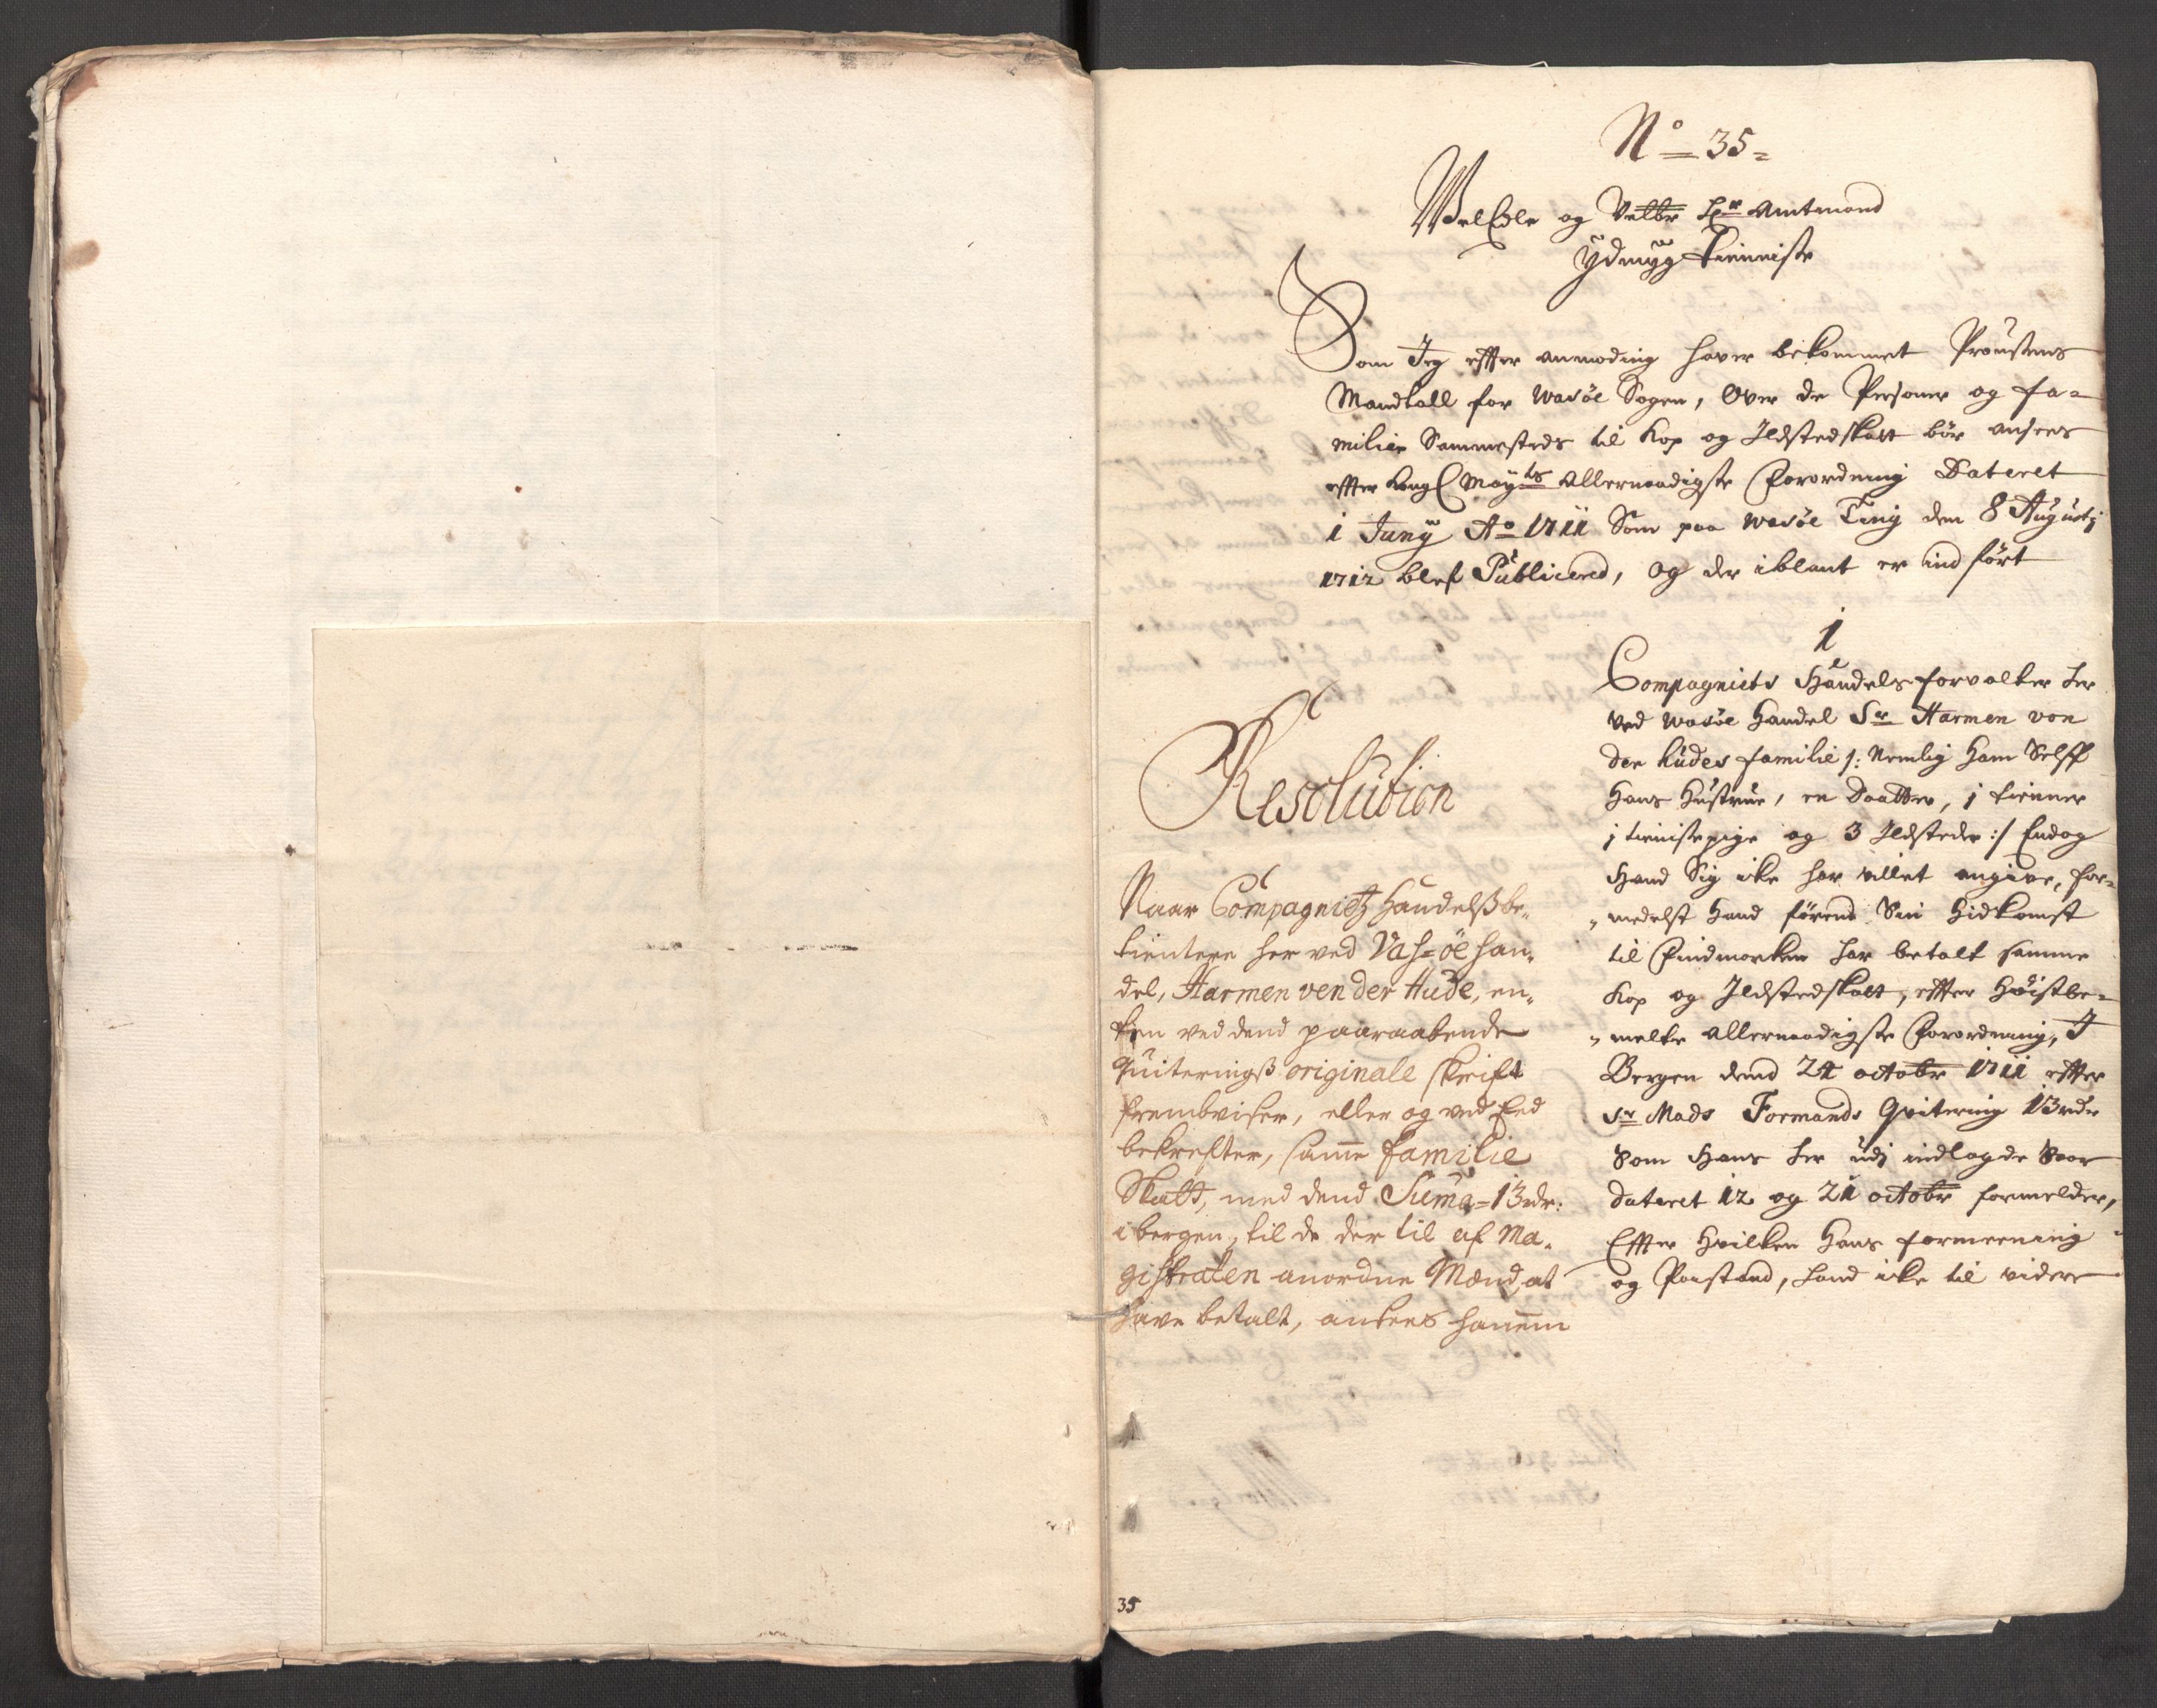 No 35
WelEdle og Velbr Hr Amtmand
ydmyg tienniste
Som Jeg effter anmoding haver bekommet Proustens
Mandtall for Wasöe Sogen, Over de Personer og fa-
milier Sammesteds til Kop og Ildstedskatt bör ansees
effter Kongl Mayts Allernaadigste Forordning Dateret
1 Juny Ao 1711 Som paa Wasöe Ting den 8 Augustj
1712 blef Publicered, og der iblant er ind fört
1
Compagniets Handels forvalter her
ved Wasöe Handel Sr Harmen von
der Hudes familie /: Nemlig ham Selff
Hans Hustrue, en Daatter, 1 tienner
1 tienistepige og 3 Ildsteder :/ Endog
Hand Sig icke har villet angive, for-
medelst hand förend Sin Hidkomst
til Findmarken har betalt samme
Kop og Ildstedskatt, effter Höistbe-
melte Allernaadigste Forordning, I
Bergen dend 24 octobr 1711 effter
Sr Mads Formands Qvitering 13 rdr
Som Hans her udj indlagde Svar
dateret 12 og 21 octobr formelder,
Effter hvilken Hans formeening
og Paastand, hand icke til videre
Resolution
Naar Compagnietz Handelsbe-
tientere her ved Vas-öe han-
del, Harmen ven der Hude, en-
ten ved dend paaraabende
Quiterings originale skrift
frembviser, eller og ved Eed
bekrefter, samme familie
Skatt, med dend Suma 13 rdr:
i bergen, til de der til af Ma-
gistraten anordne Mænd at
have betalt, ansees hannem
35